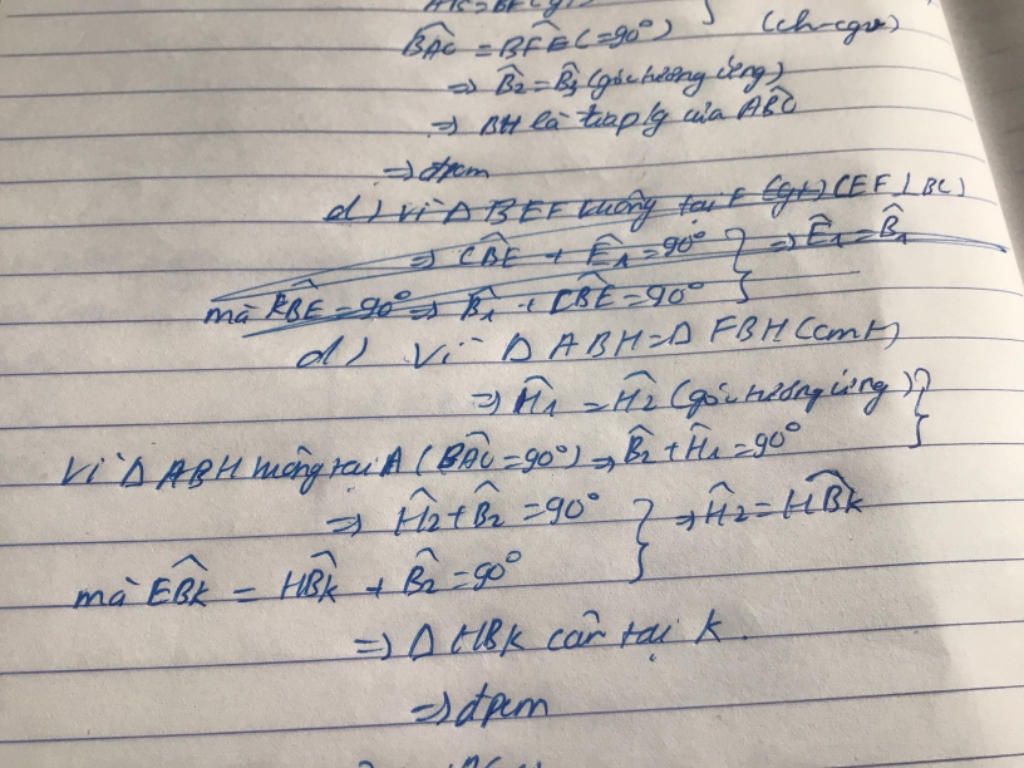 BÂC = BFE (=90°) (ch-cgv)
⇒ B̂2 = B̂3 (góc tương ứng)
⇒ BH là tia p/g của ABC
⇒ đpcm
d) Vì Δ BEF vuông tại F (gt) (EF ⊥ BC)
⇒ CBE + Ê1 = 90° } ⇒ Ê1 = B̂1
mà KBE = 90° ⇒ B̂1 + CBE = 90°
d) Vì Δ ABH = Δ FBH (cmt)
⇒ Ĥ1 = Ĥ2 (góc tương ứng) }
Vì Δ ABH vuông tại A (BÂC = 90°) ⇒ B̂2 + Ĥ1 = 90°
⇒ Ĥ2 + B̂2 = 90° } ⇒ Ĥ2 = HBK
mà EBK = HBK + B̂2 = 90°
⇒ Δ HBK cân tại K.
⇒ đpcm